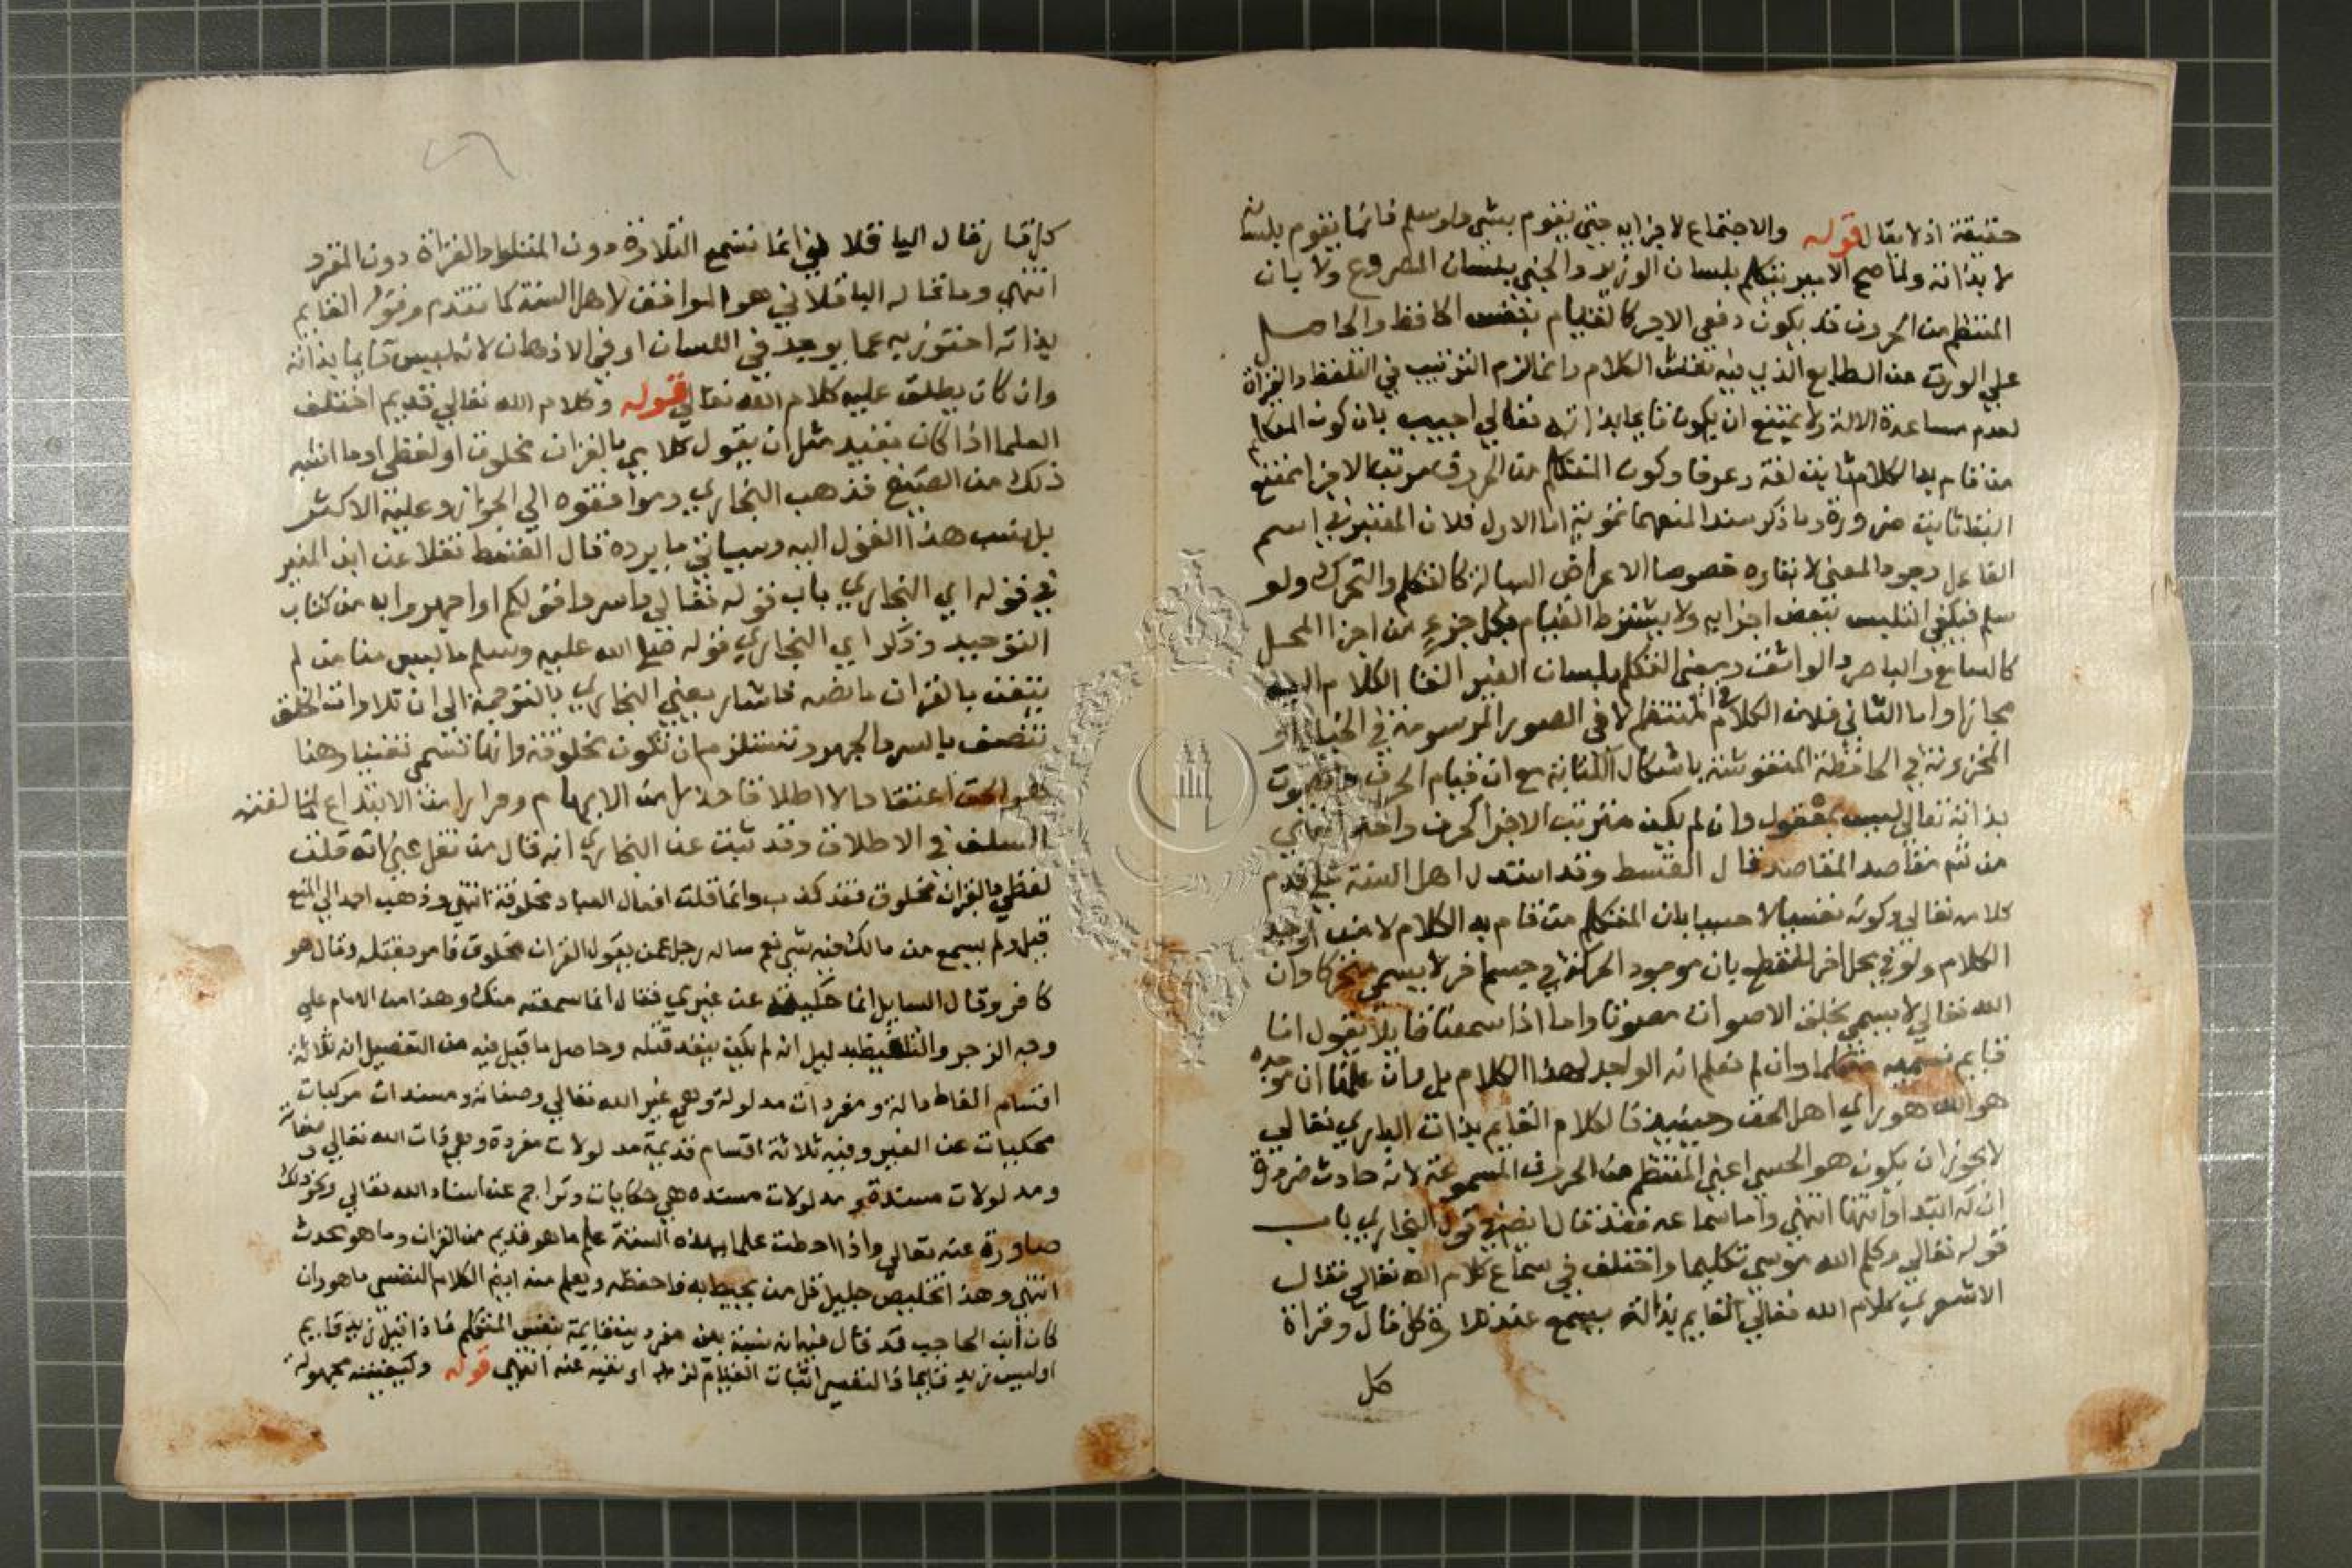 حقيقة اذ لا بقا له قوله والاجتماع لاجزايه حتى يقوم بشي ولو سلم فانما يقوم بلسانه
لا بذاته ولما صح الامير يتكلم بلسان الوزير والجني بلسان المصروع ولا بان
المنتظم من الحروف قد يكون دفعي الاجزا كالقيام بنفس الحافظ والحاصل
علي الورق من الطابع الذي فيه نقش الكلام وانما لزم الترتيب في التلفظ والقراة
لعدم مساعدة الالة ولا يمتنع ان يكون قايما بذاته تعالي اجيب بان كون المتكلم
من قام به الكلام ثابت لغة وعرفا وكون المنتظم من الحروف مرتب الاجزا ممتنع
البقا ثابت ضرورة وما ذكر سندا لمنعهما تمويه اما الاول فلان المعتبر في اسم
الفاعل وجود المعني لا بقاوه خصوصا الاعراض السيالة كالتكلم والتحرك ولو
سلم فيكفي التلبس ببعض اجزايه ولا يشترط القيام بكل جزء من اجزا المحل
كالسامع والباصر والواثق ومعني التكلم بلسان الغير القا الكلام اليه
مجازا واما الثاني فلان الكلام في المنتظم لا في الصور المرسومة في الخيال او
المخزونة في الحافظة المنقوشة باشكال الكتابة مع ان قيام الحرف والصوت
بذاته تعالي ليس بمعقول وان لم يكن مترتب الاجزا كحرف واحد انتهي
من ثم مقاصد المقاصد قال القسط وقد استدل اهل السنة علي قدم
كلامه تعالي وكونه نفسيا لا حسيا بان المتكلم من قام به الكلام لا من اوجد
الكلام ولو في محل اخر للقطع بان موجود الحركة في جسم اخر لا يسمي متحركا وان
الله تعالي لا يسمي بخلق الاصوات مصوتا واما اذا سمعنا قايلا يقول انا
قايم نسميه متكلما وان لم نعلم انه الواجد لهذا الكلام بل وان علمنا ان موجده
هو الله هو راي اهل الحق وحينيذ فالكلام القايم بذات الباري تعالي
لا يجوز ان يكون هو الحسي اعني المنتظم من الحروف المسموعة لانه حادث ضرورة
ان له ابتدا وانتها انتهي واما سماعه فقد قال ايضا في قول البخاري باب
قوله تعالي وكلم الله موسي تكليما واختلف في سماع كلام الله تعالي فقال
الاشعري كلام الله تعالي القايم بذاته يسمع عند تلاوة كل تال وقراة
كل
كل قار وقال الباقلاني انما نسمع التلاوة دون المتلو والقراة دون المقرو
انتهي وما قاله الباقلاني هو الموافق لاهل السنة كما تقدم وقوله القايم
بذاته احترز به عما يوجد في اللسان او في الاذهان لانه ليس قايما بذاته
وان كان يطلق عليه كلام الله تعالي قوله وكلام الله تعالي قديم اختلف
العلما اذا كان بقيد مثل ان يقول كلامي بالقران مخلوق او لفظي او ما اشبه
ذلك من الصيغ فذهب البخاري وموافقوه الي الجواز وعليه الاكثر
بل نسب هذا القول اليه وسياتي ما يرده قال القسط نقلا عن ابن المنير
في قوله اي البخاري باب قوله تعالي واسروا قولكم او اجهروا به من كتاب
التوحيد وذكر اي البخاري قوله صلي الله عليه وسلم ما ليس منا من لم
يتغن بالقران ما نصه فاشار يعني البخاري بالترجمة الي ان تلاوات الخلق
تتصف بالسر والجهر وتستلزم ان تكون مخلوقة وانها تسمي تغنيا وهذا
هو الحق اعتقادا لا اطلاقا حذرا من الايهام وفرارا من الابتداع لمخالفته
السلف في الاطلاق وقد ثبت عن البخاري انه قال من نقل عني انه قلت
لفظي بالقران مخلوق فقد كذب وانما قلت افعال العباد مخلوقة انتهي وذهب احمد الي المنع
قيل ولم يسمع من مالك فيه شي نعم ساله رجل عمن يقول القران مخلوق فامر بقتله وقال هو
كافر وقال السايل انما حكيته عن غيري فقال انما سمعته منك وهذا من الامام علي
وجه الزجر والتغليظ بدليل انه لم يكن ينفذ قتله وحاصل ما قيل فيه من التفصيل انه ثلاثة
اقسام الفاظ دالة ومفردات مدلولة وهي غير الله تعالي وصفاته ومسندات مركبات
محكيات عن الغير وفيه ثلاثة اقسام قديمة مدلولات مفردة وهي ذات الله تعالي وصفاته
ومدلولات مسندة ومدلولات مسنده هي حكايات وتراجم عن اسناد الله تعالي ونحو ذلك
صادرة عنه تعالي واذا احطت علما بهذه الستة علم ما هو قديم من القران وما هو محدث
انتهي وهذا تخليص جليل قل من يحيط به فاحفظه ويعلم منه ايضا الكلام النفسي ما هو وان
كان ابن الحاجب قد قال فيه انه نسبة بين مفردين قايمة بنفس المتكلم فاذا قيل زيد قايم
او ليس زيد قايما فالنفسي اثبات القيام لزيد او نفيه عنه انتهي قوله وكيفيته مجهولة